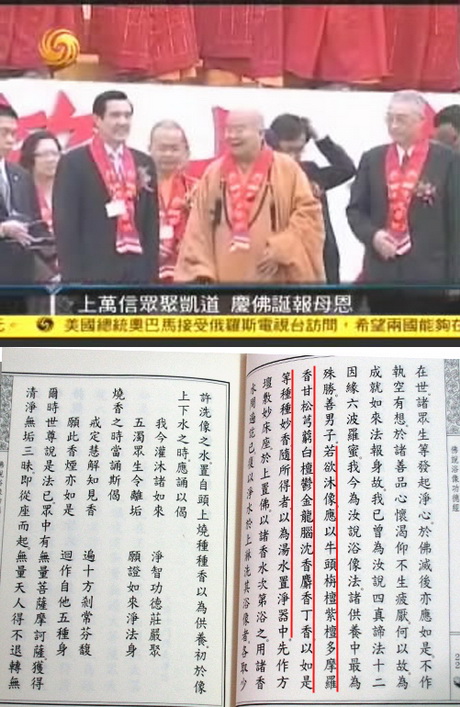 上萬信眾聚凱道 慶佛誕報母恩
元。 美國總統奧巴馬接受俄羅斯電視台訪問，希望兩國能夠在
佛說浴像功德經
22
在世諸眾生等發起淨心於佛滅後亦應如是不作
執空有想於諸善品心懷渴仰不生疲厭何以故為
成就如來法報身故我已曾為汝說四真諦法十二
因緣六波羅蜜我今為汝說浴像法諸供養中最為
殊勝善男子若欲沐像應以牛頭栴檀紫檀多摩羅
香甘松芎藭白檀鬱金龍腦沈香麝香丁香以如是
等種種妙香隨所得者以為湯水置淨器中先作方
壇敷妙床座於上置佛以諸香水次第浴之用諸香
水周遍訖已復以淨水於上淋洗其浴像者各取少
許洗像之水置自頭上燒種種香以為供養初於像
上下水之時應誦以偈
我今灌沐諸如來 淨智功德莊嚴聚
五濁眾生令離垢 願證如來淨法身
燒香之時當誦斯偈
戒定慧解知見香 遍十方剎常芬馥
願此香煙亦如是 迴作自他五種身
爾時世尊說是法已眾中有無量菩薩摩訶薩獲得
清淨無垢三昧即從座而起無量天人得不退轉無